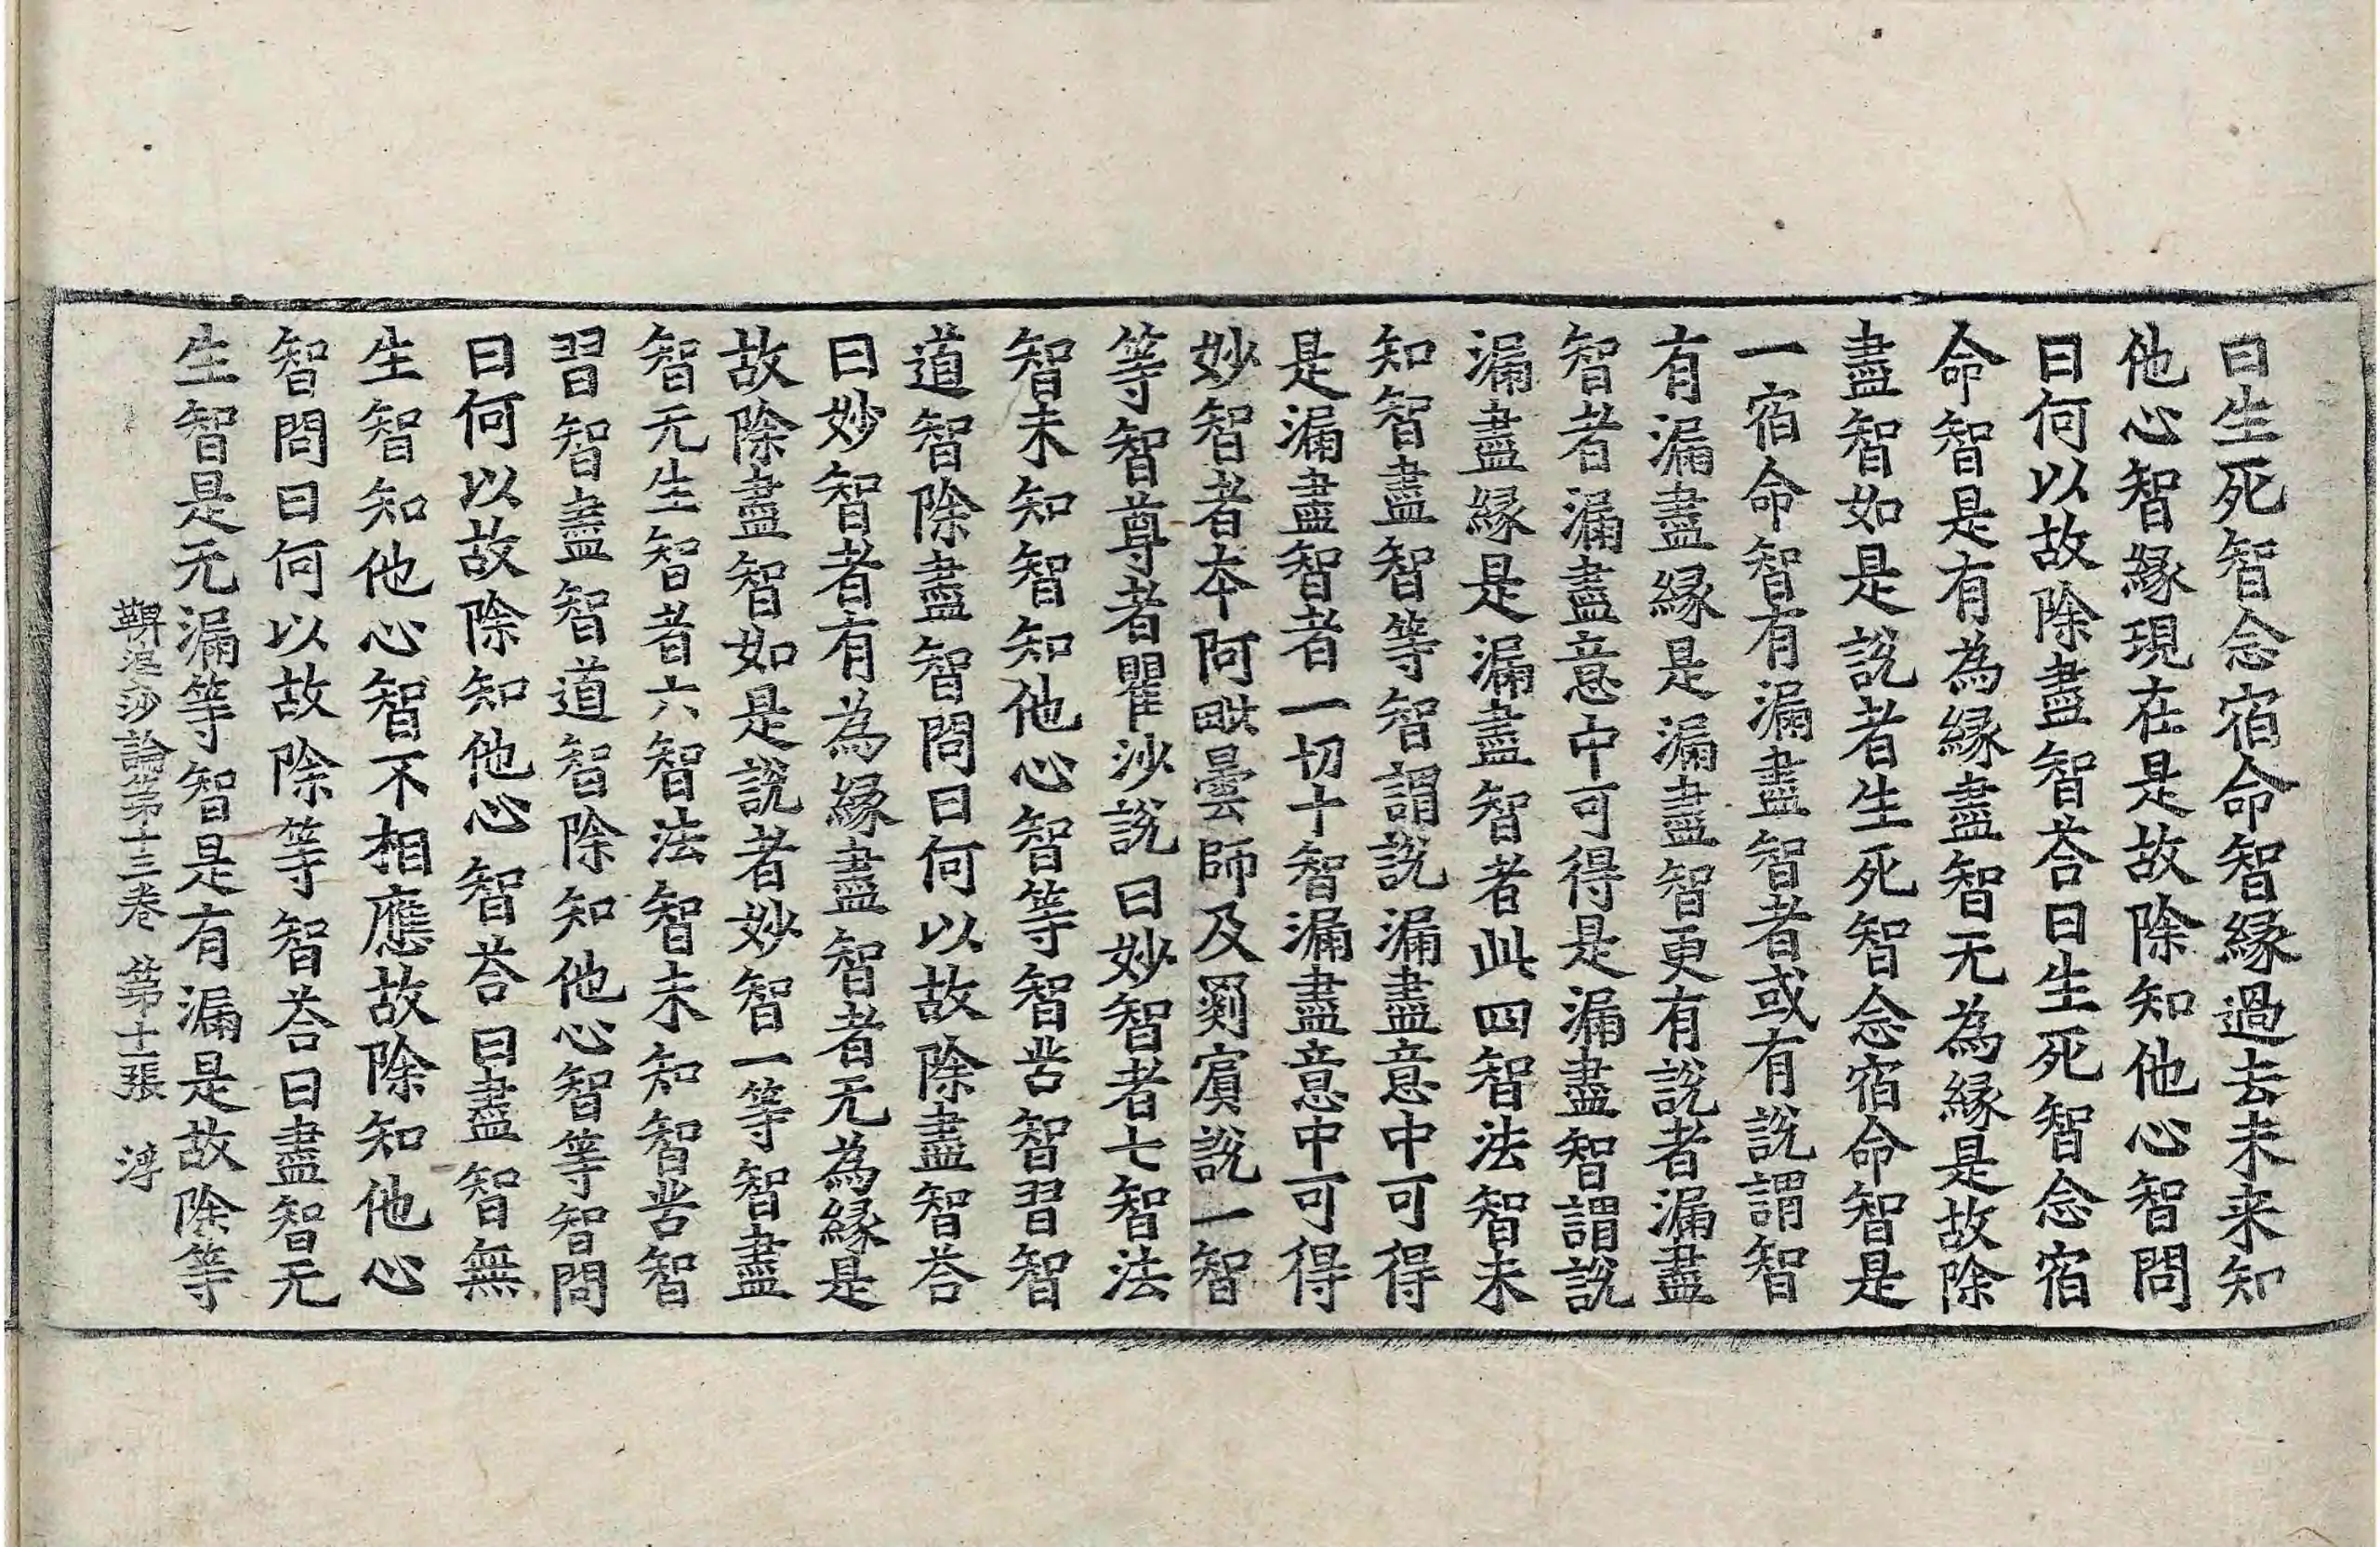 曰生死智念宿命智縁過去未来知
他心智縁現在是故除知他心智問
曰何以故除盡智荅曰生死智念宿
命智是有為縁盡智无為縁是故除
盡智如是說者生死智念宿命智是
一宿命智有漏盡智者或有說謂智
有漏盡縁是漏盡智更有說者漏盡
智者漏盡意中可得是漏盡智謂說
漏盡縁是漏盡智者此四智法智未
知智盡智等智謂說漏盡意中可得
是漏盡智者一切十智漏盡意中可得
妙智者本阿毗曇師及罽賔說一智
等智尊者瞿沙說曰妙智者七智法
智未知智知他心智等智苦智習智
道智除盡智問曰何以故除盡智荅
曰妙智者有為縁盡智者无為縁是
故除盡智如是說者妙智一等智盡
智无生智者六智法智未知智苦智
習智盡智道智除知他心智等智問
曰何以故除知他心智荅曰盡智無
生智知他心智不相應故除知他心
智問曰何以故除等智荅曰盡智无
生智是无漏等智是有漏是故除等
鞞婆沙論第十三卷 第十一張 浮